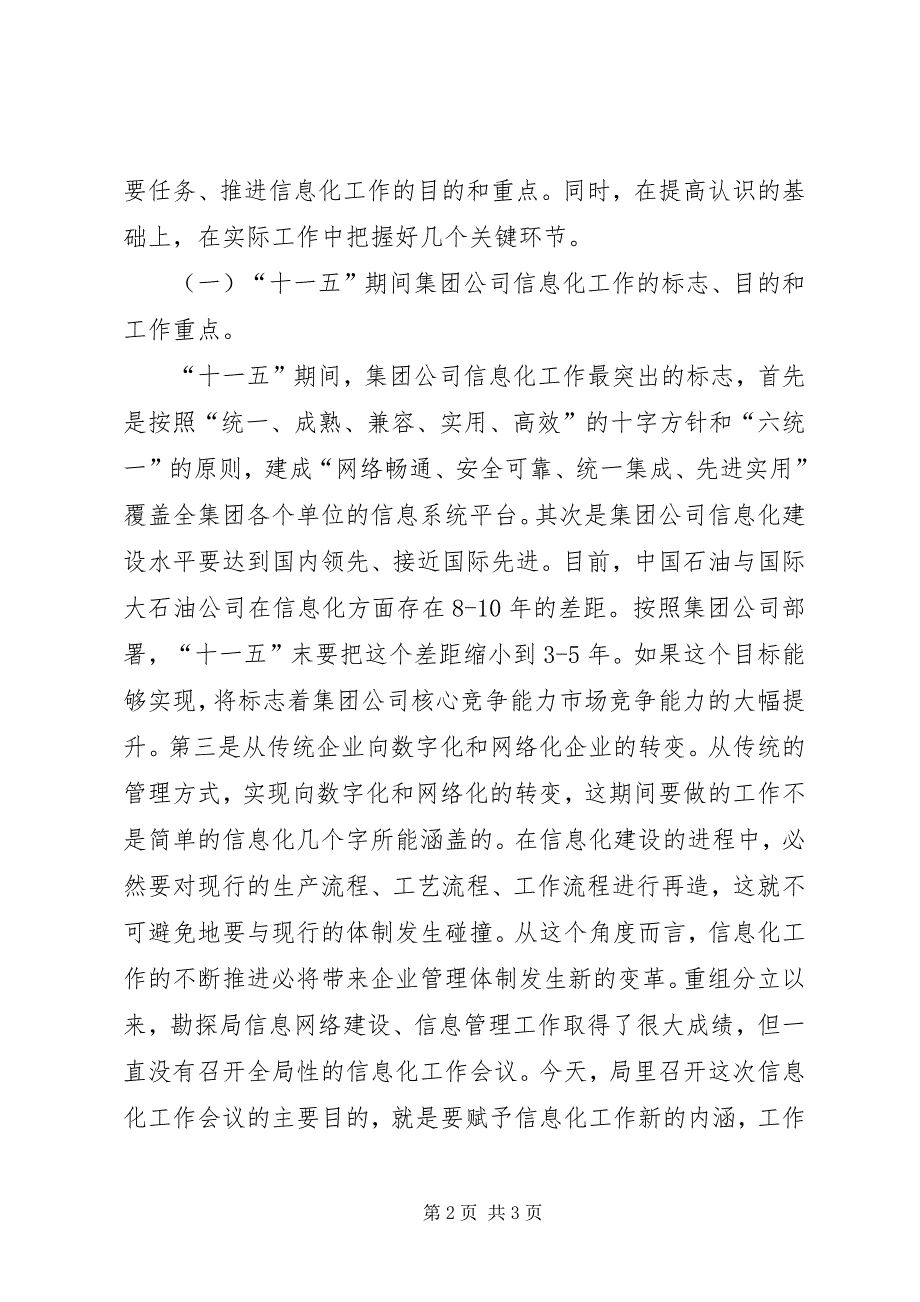 要任务、推进信息化工作的目的和重点。同时，在提高认识的基
础上，在实际工作中把握好几个关键环节。
（一）“十一五”期间集团公司信息化工作的标志、目的和
工作重点。
“十一五”期间，集团公司信息化工作最突出的标志，首先
是按照“统一、成熟、兼容、实用、高效”的十字方针和“六统
一”的原则，建成“网络畅通、安全可靠、统一集成、先进实用”
覆盖全集团各个单位的信息系统平台。其次是集团公司信息化建
设水平要达到国内领先、接近国际先进。目前，中国石油与国际
大石油公司在信息化方面存在 8-10 年的差距。按照集团公司部
署，“十一五”末要把这个差距缩小到 3-5 年。如果这个目标能
够实现，将标志着集团公司核心竞争能力市场竞争能力的大幅提
升。第三是从传统企业向数字化和网络化企业的转变。从传统的
管理方式，实现向数字化和网络化的转变，这期间要做的工作不
是简单的信息化几个字所能涵盖的。在信息化建设的进程中，必
然要对现行的生产流程、工艺流程、工作流程进行再造，这就不
可避免地要与现行的体制发生碰撞。从这个角度而言，信息化工
作的不断推进必将带来企业管理体制发生新的变革。重组分立以
来，勘探局信息网络建设、信息管理工作取得了很大成绩，但一
直没有召开全局性的信息化工作会议。今天，局里召开这次信息
化工作会议的主要目的，就是要赋予信息化工作新的内涵，工作
第 2 页 共 3 页